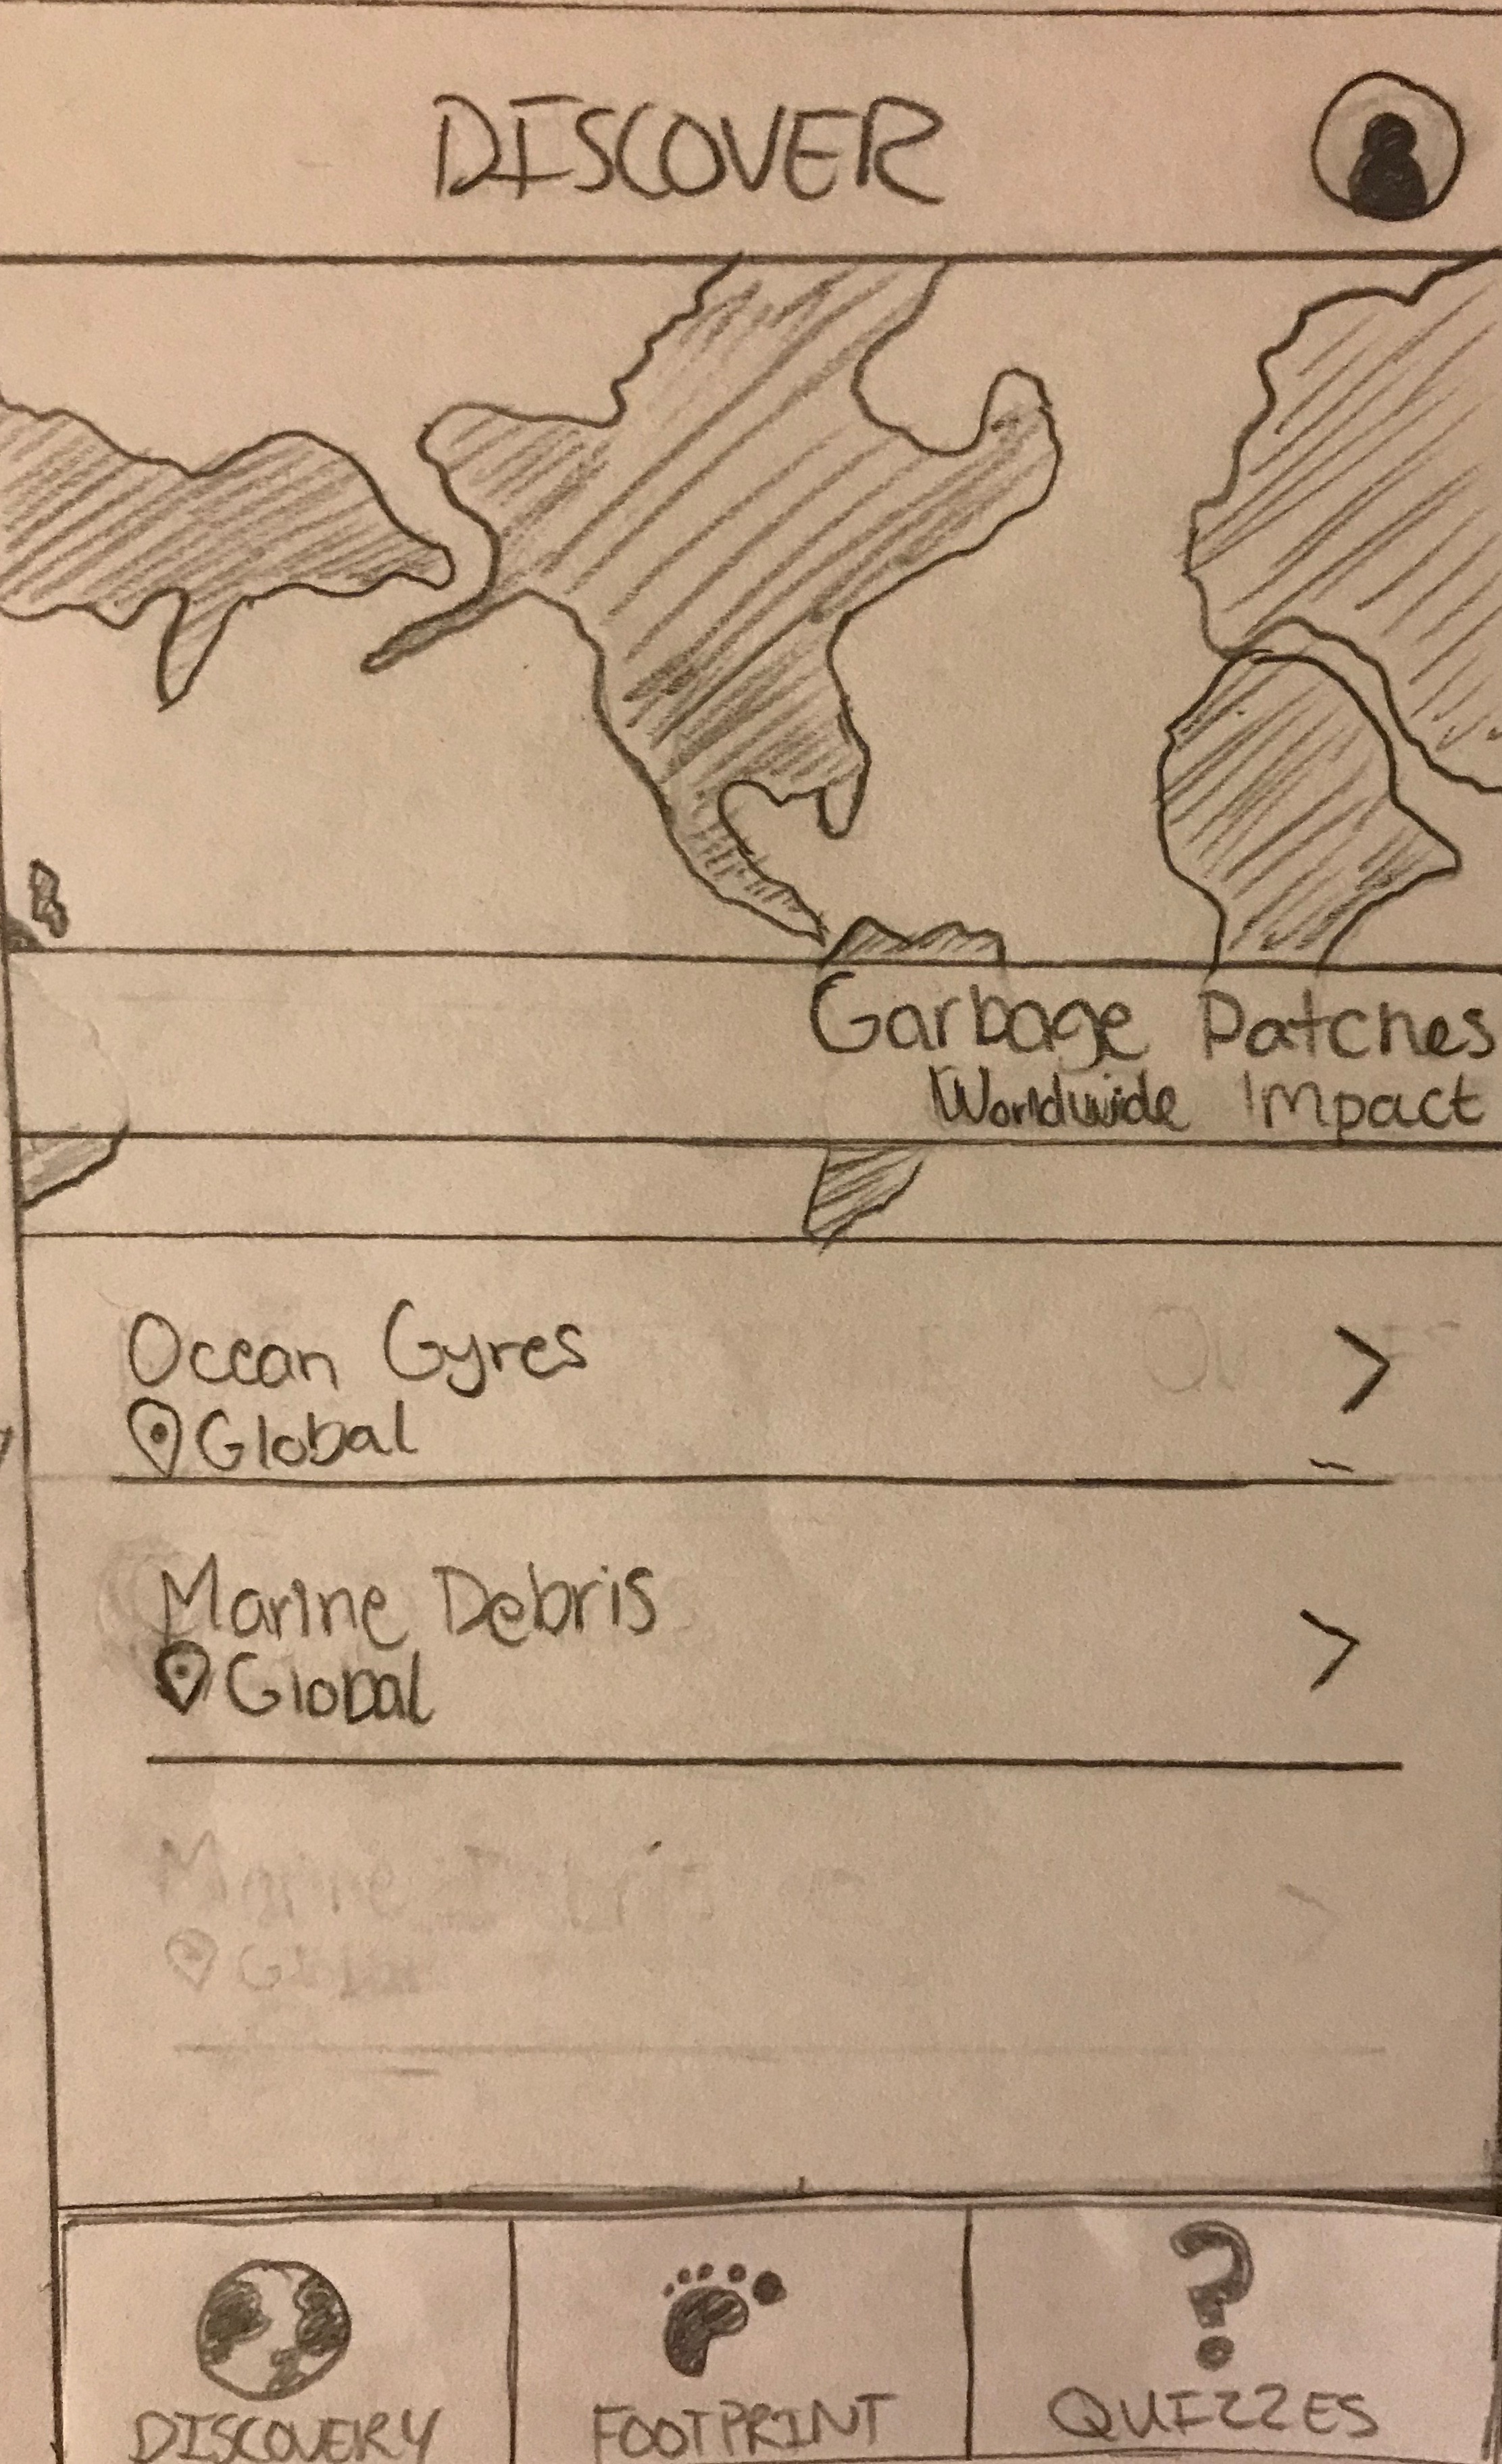 DISCOVER
Garbage Patches
Worldwide Impact
Ocean Gyres
Global
>
Marine Debris
Global
>
Marine Debris
Global
DISCOVERY
FOOTPRINT
?
QUIZZES